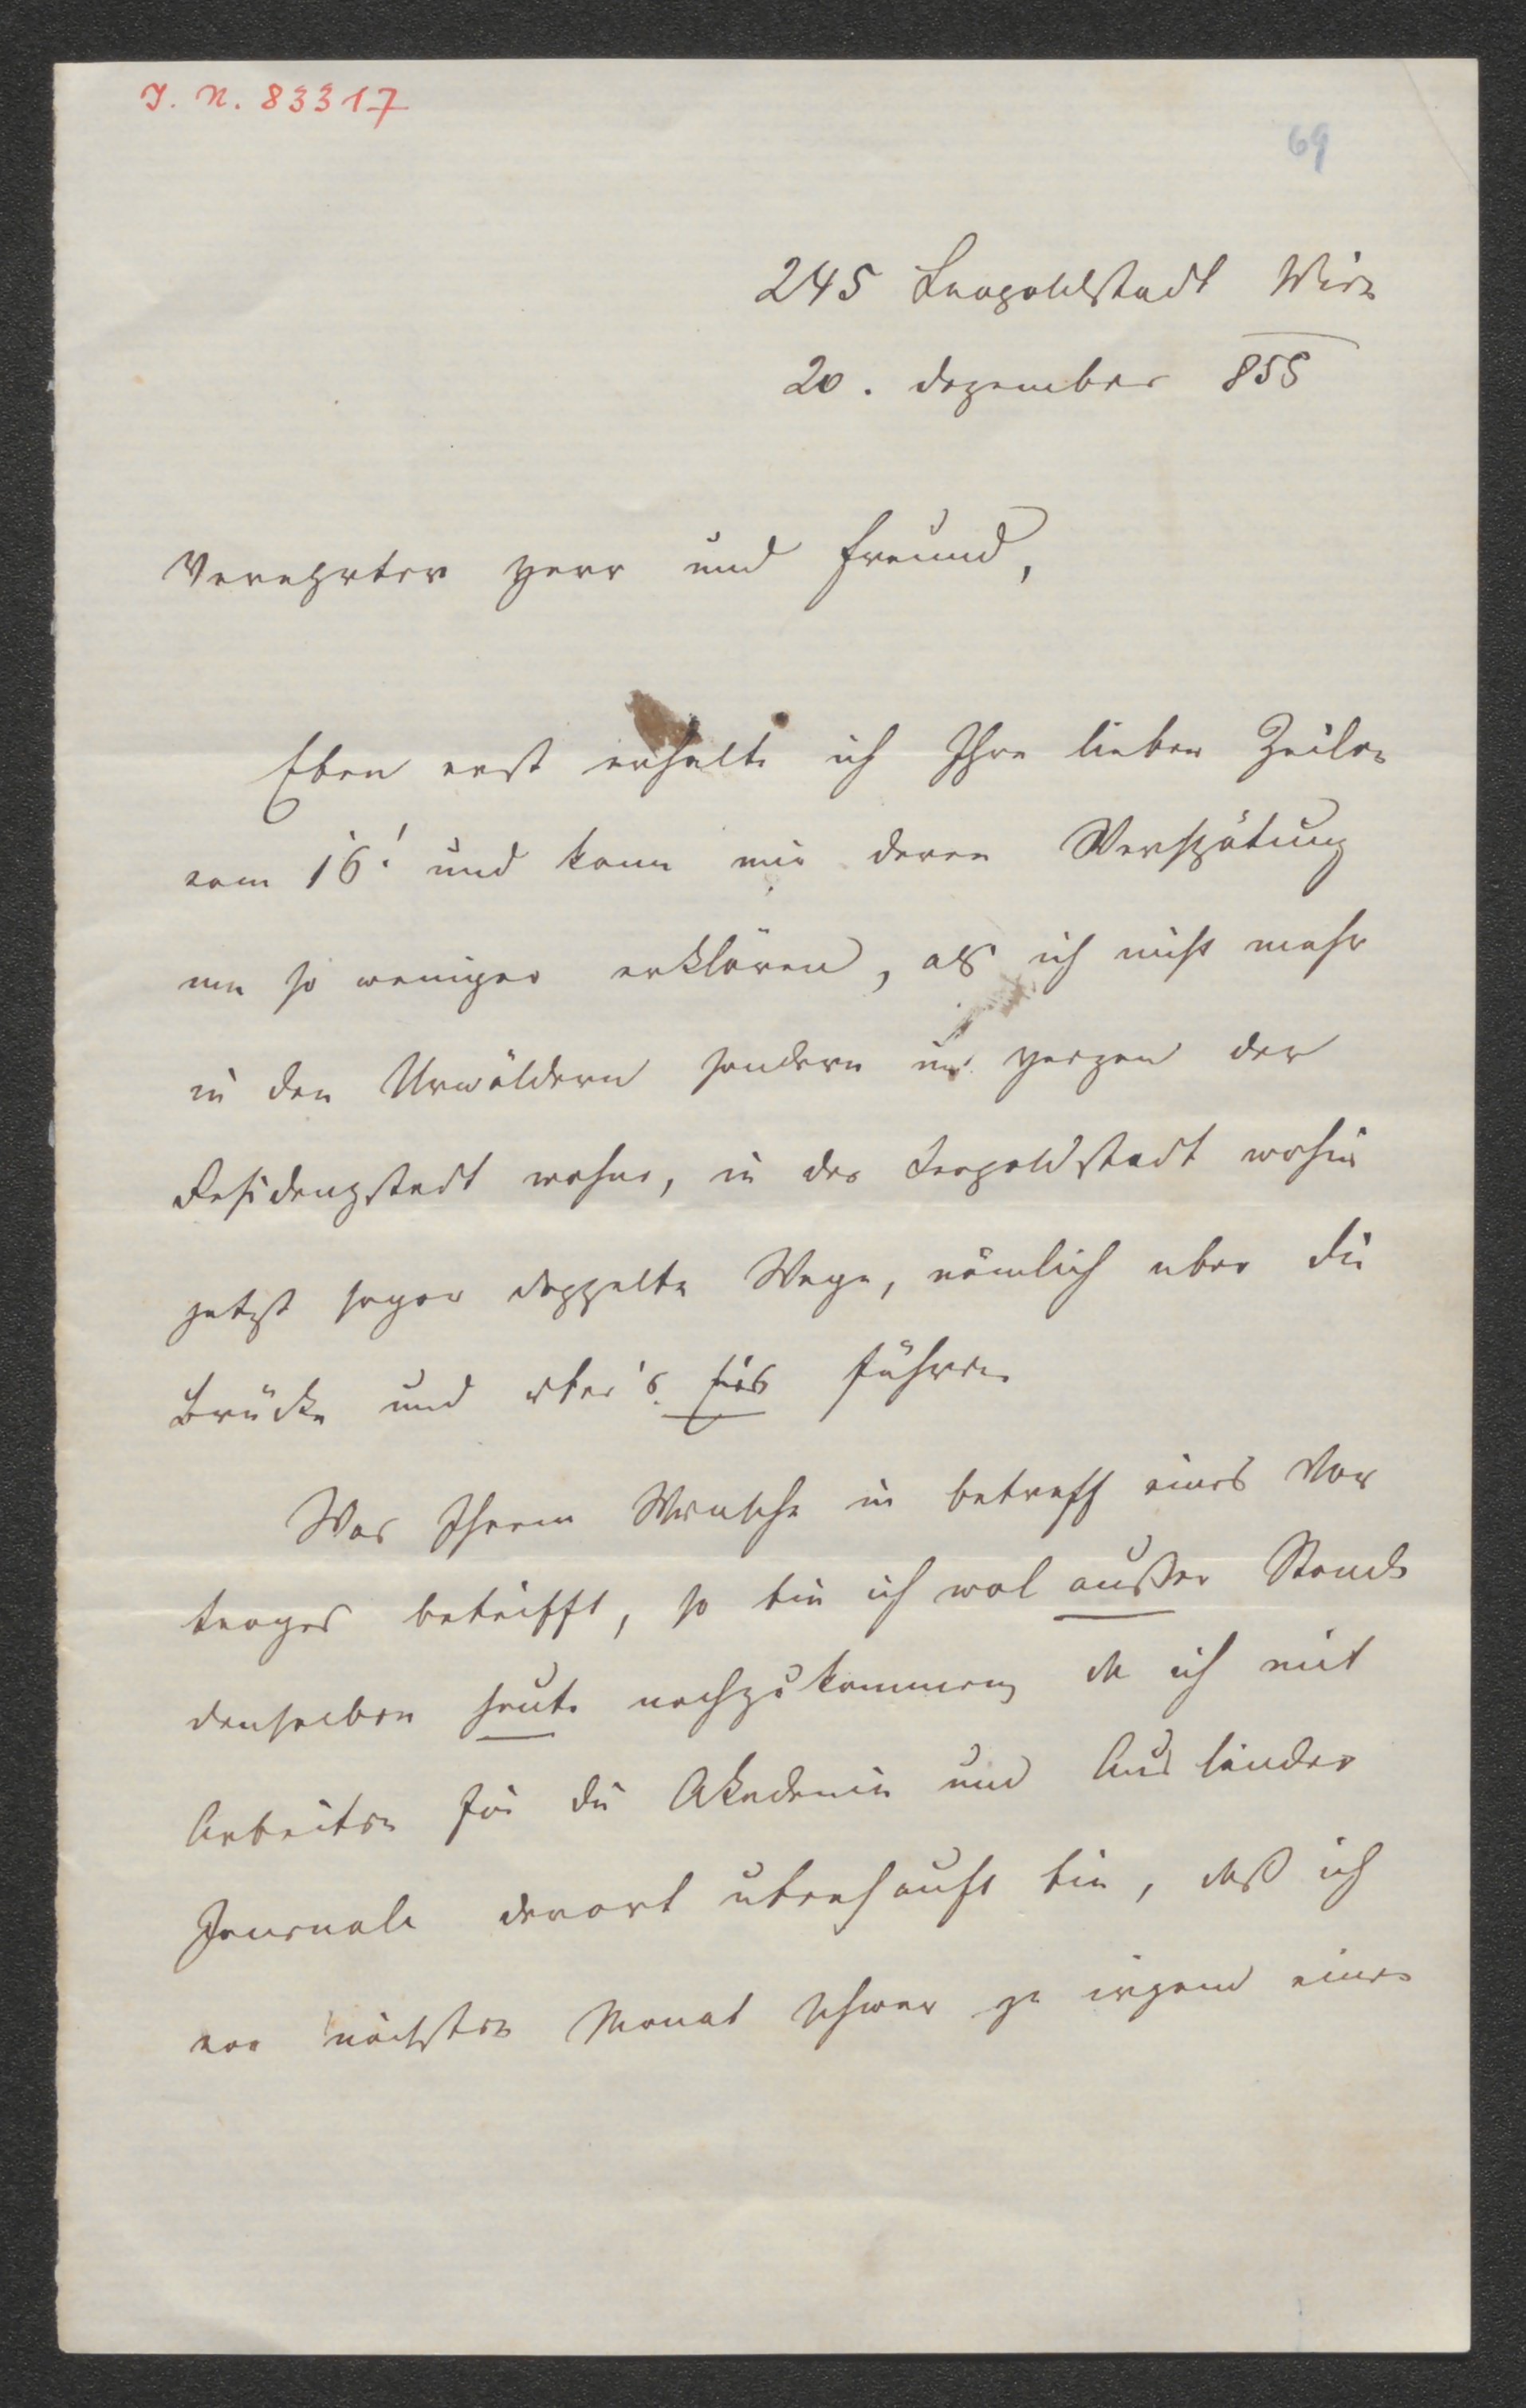 I. N. 83317
69
245 Leopoldstadt Wien
20. Dezember 855
Verehrter Herr und Freund,
Eben erst erhalte ich Ihre lieben Zeilen
vom 16! und kann mir deren Verspätung
um so weniger erklären, als ich nicht mehr
in den Urwäldern sondern im Herzen der
Residenzstadt wohne, in der Leopoldstadt wohin
jetzt sogar doppelte Wege, nämlich uber die
Brücke und uber's Eis führen
Was Ihrem Wunsche in betreff eines Vor
trages betrifft, so bin ich wol außer Stande
denselben heute nachzukommen, da ich mit
Arbeiten für die Akademie und Ausländer
Journale derart uberhauft bin, daß ich
vor nächsten Monat schwer zu irgend einer